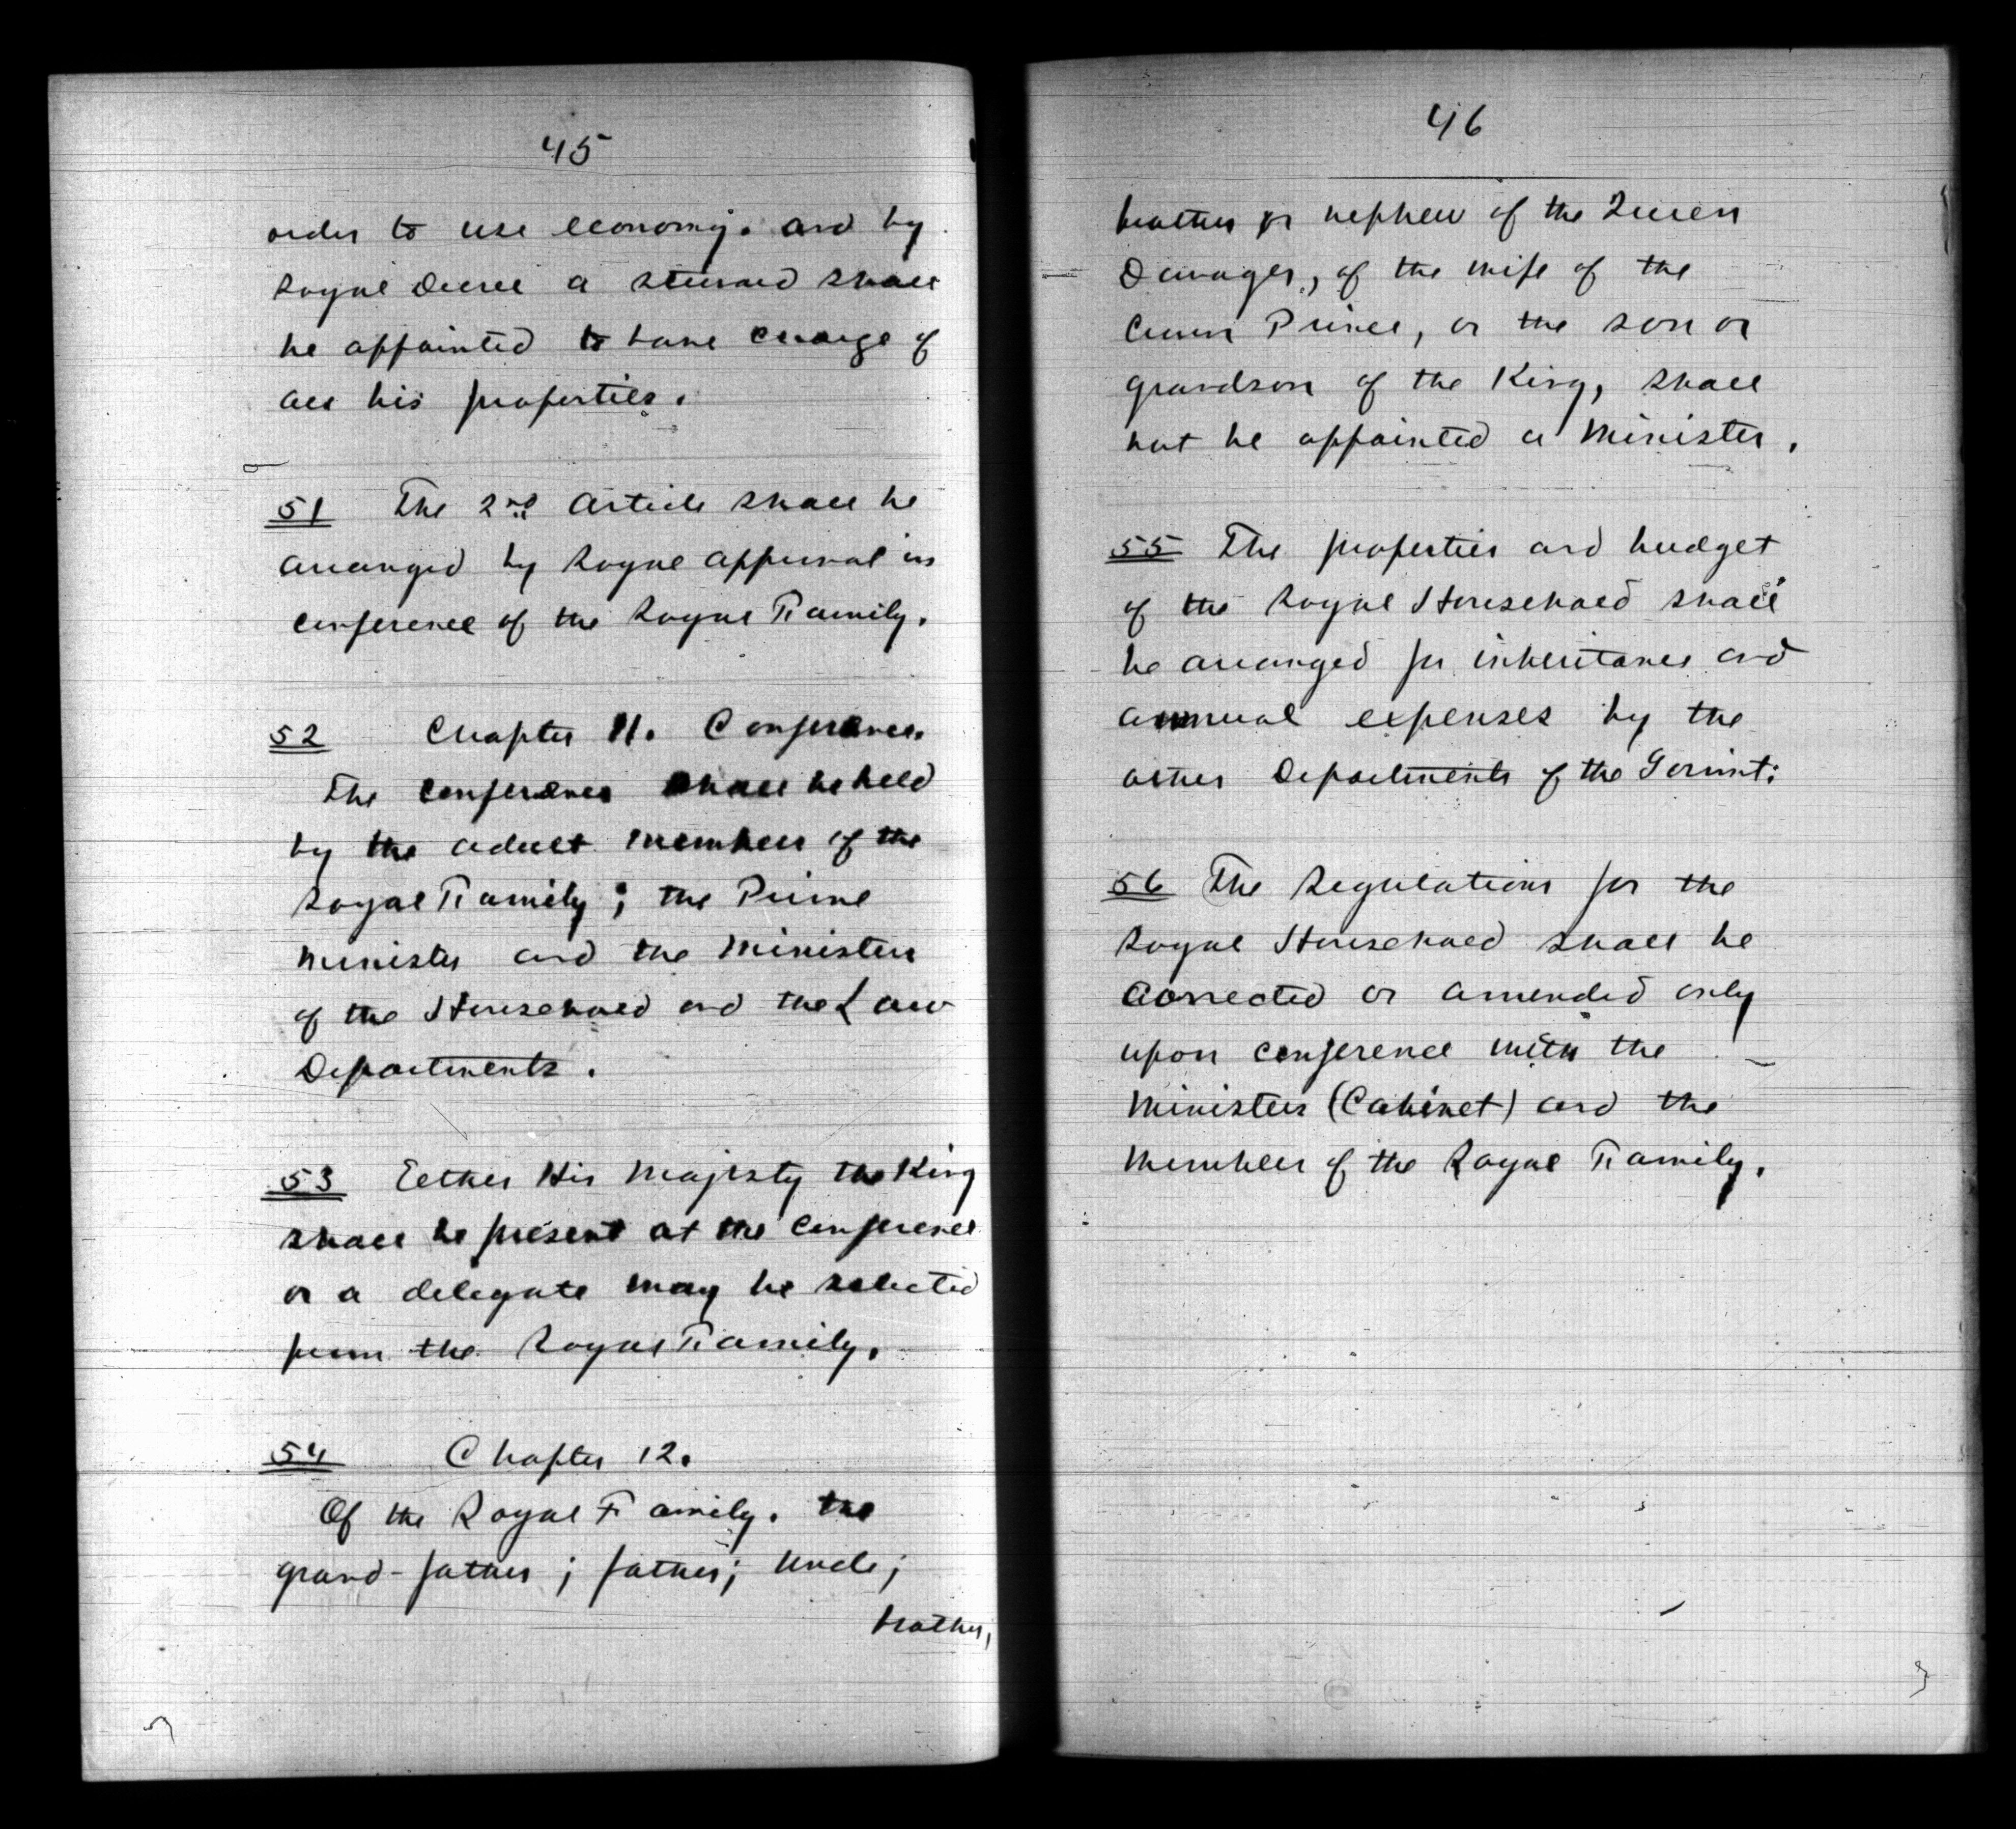 45
order to use economy. and by
Royal Decree a steward shall
be appointed to have charge of
all his properties.
51 The 2nd Article shall be
arranged by Royal approval in
conference of the Royal Family.
52 Chapter 11. Conference.
The conference shall be held
by the adult members of the
Royal Family; the Prime
Minister and the Ministers
of the Household and the Law
Departments.
53 Either His Majesty the King
shall be present at the conference
or a delegate may be selected
from the Royal Family.
54 Chapter 12.
Of the Royal Family. the
grand-father; father; uncle;
brother,
46
brother or nephew of the Queen
Dowager, of the wife of the
Crown Prince, or the son or
grandson of the King, shall
not be appointed a Minister.
55 The properties and budget
of the Royal Household shall
be arranged for inheritance and
annual expenses by the
other Departments of the Govmnt:
56 The Regulations for the
Royal Household shall be
corrected or amended only
upon conference with the
Ministers (Cabinet) and the
Members of the Royal Family.